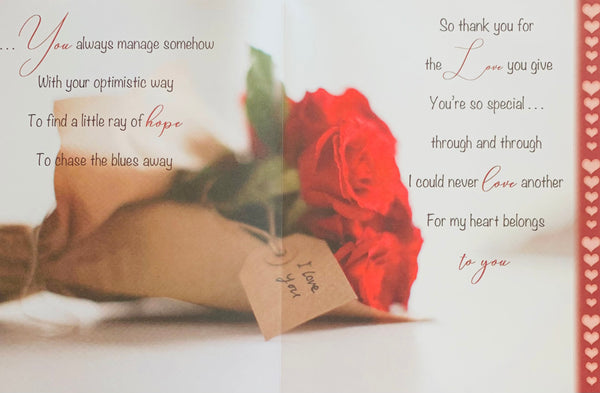 ... You always manage somehow
With your optimistic way
To find a little ray of hope
To chase the blues away
I love
you
So thank you for
the Love you give
You're so special ...
through and through
I could never love another
For my heart belongs
to you